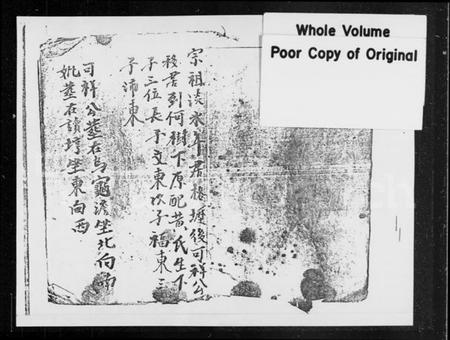 Whole Volume
Poor Copy of Original
宗祖淡水平居梅塘後可祥公
移居到何樹下原配黃氏生下
子三位長子文東次子福東三
子沛東
可祥公塟在烏龜灣坐北向南
妣塟在讀塘坐東向西